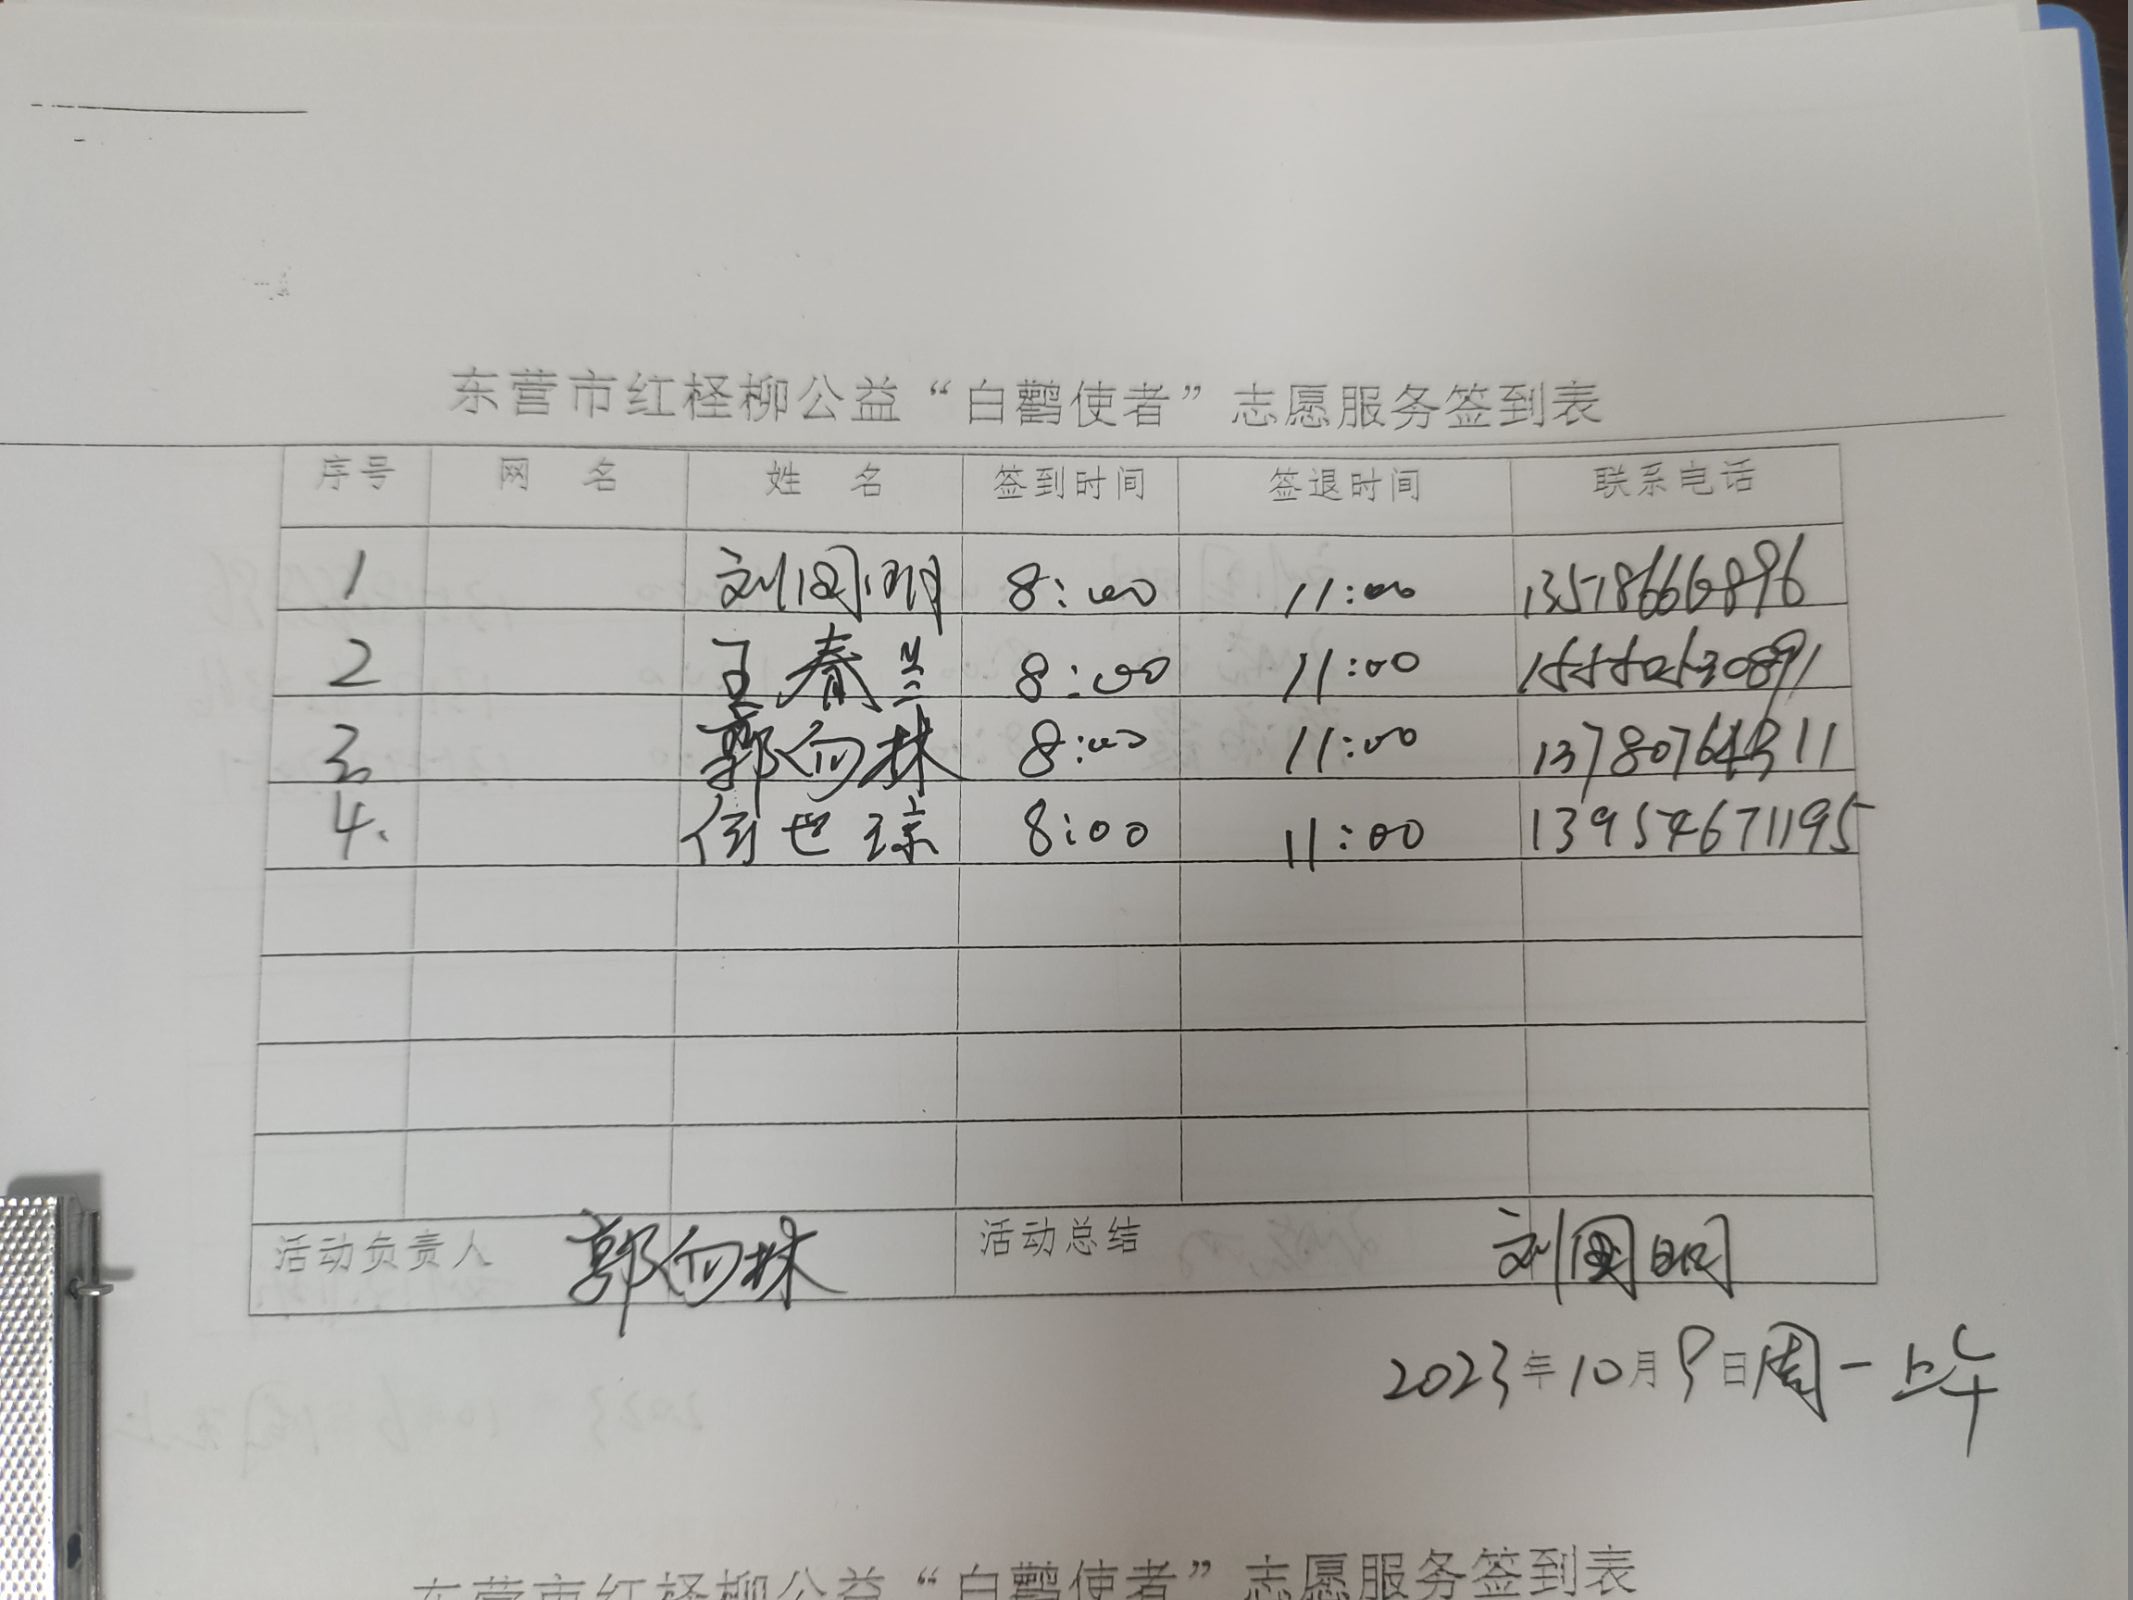 东营市红柽柳公益“白鹳使者”志愿服务签到表
序号 网 名 姓 名 签到时间 签退时间 联系电话
1 刘国明 8:00 11:00 13578666896
2 王春兰 8:00 11:00
3 郭向林 8:00 11:00 13780764311
4. 世琼 8:00 11:00 13954671195
活动负责人 郭向林 活动总结 刘国明
2023年10月9日周一上午
东营市红柽柳公益“白鹳使者”志愿服务签到表